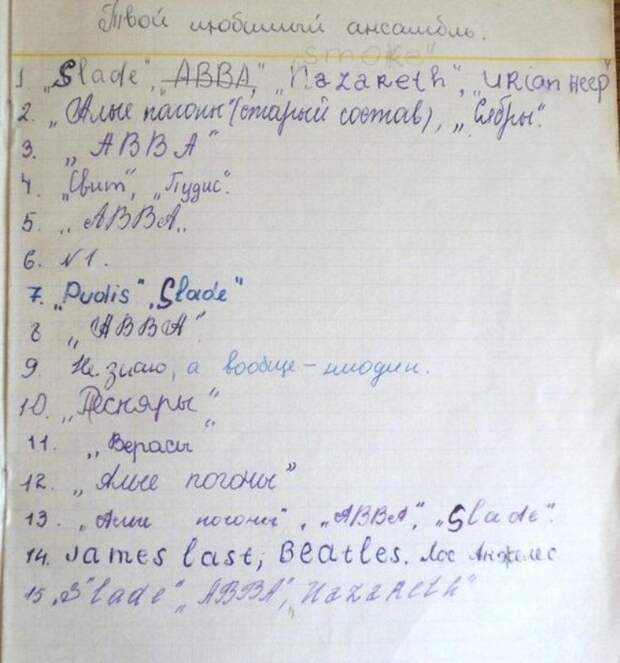 Твой любимый ансамбль.
"Smoke"
1 „Slade", „ABBA", „Nazareth", „URian Heep"
2. „Алые погоны" (старый состав), „Сябры".
3. „ABBA"
4 „Свит", „Пудис".
5. „ABBA„
6. N1.
7. „Pudis", Slade"
8 „ABBA".
9 Не знаю, а вообще – ниодин.
10. „Песняры"
11. „Верасы"
12. „Алые погоны"
13. „Алые погоны", „ABBA", „Slade".
14. James last, Beatles. Лос Анжелес
15 „Slade", „ABBA", „Nazareth"